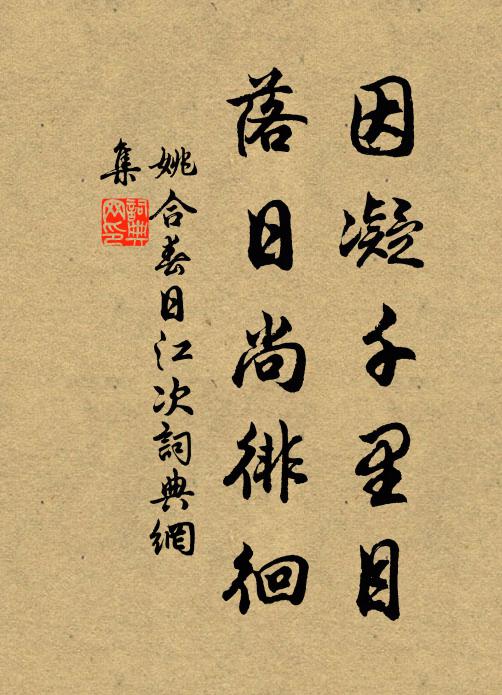 因凝千里目
落日尚徘徊
姚合春日江次詞典網
集
詞典網印